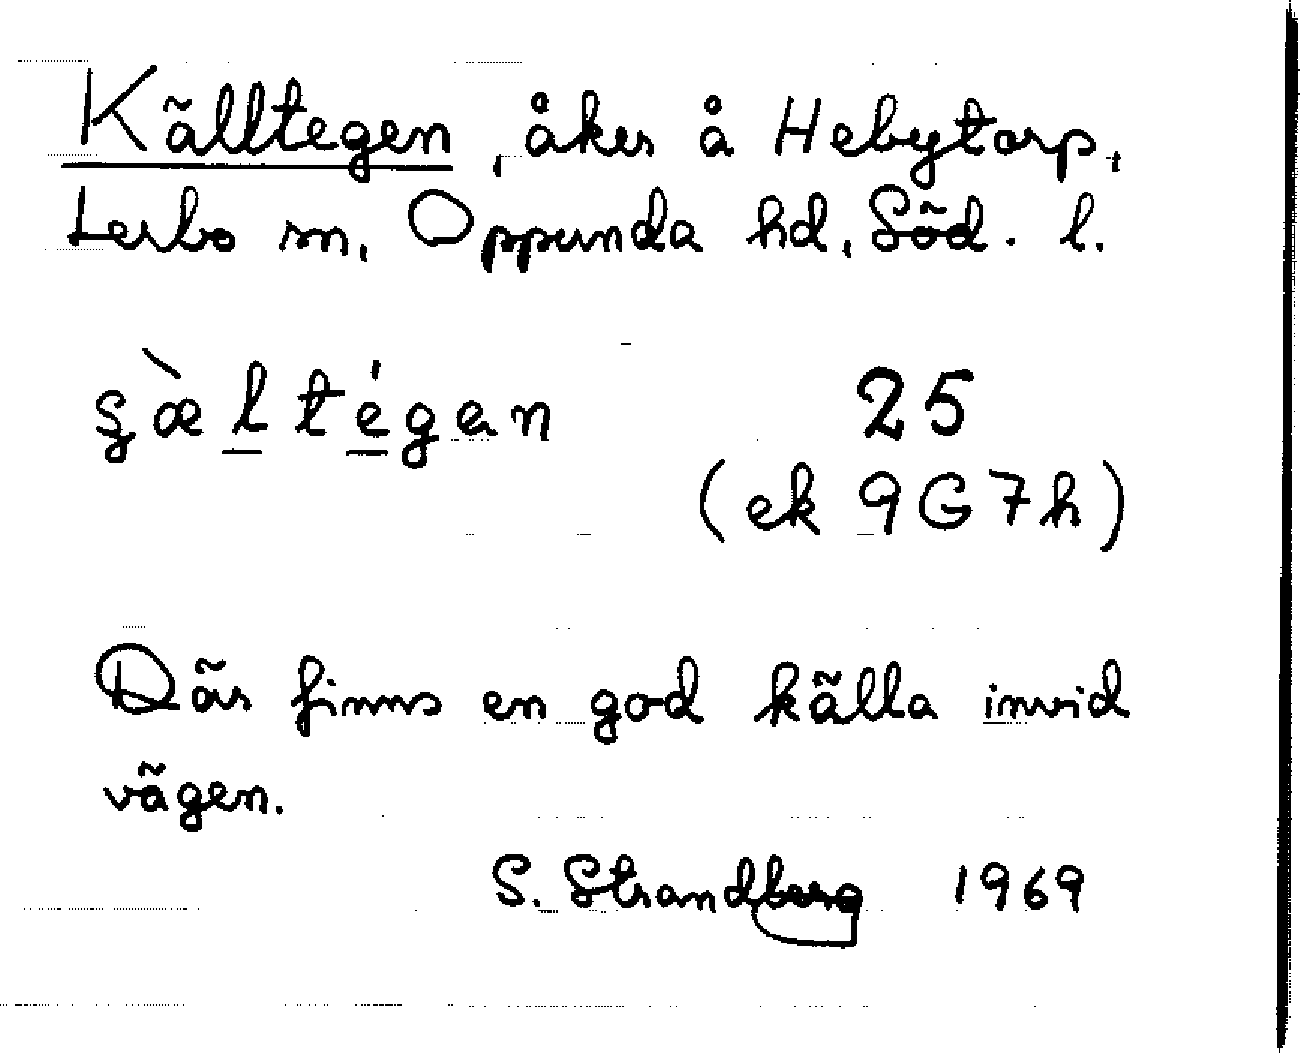 Källtegen, åker å Hebytorp,
Lerbo sn, Oppunda hd, Söd. l.
25
(ek 9G7h)
Där finns en god källa invid
vägen.
S. Strandberg 1969